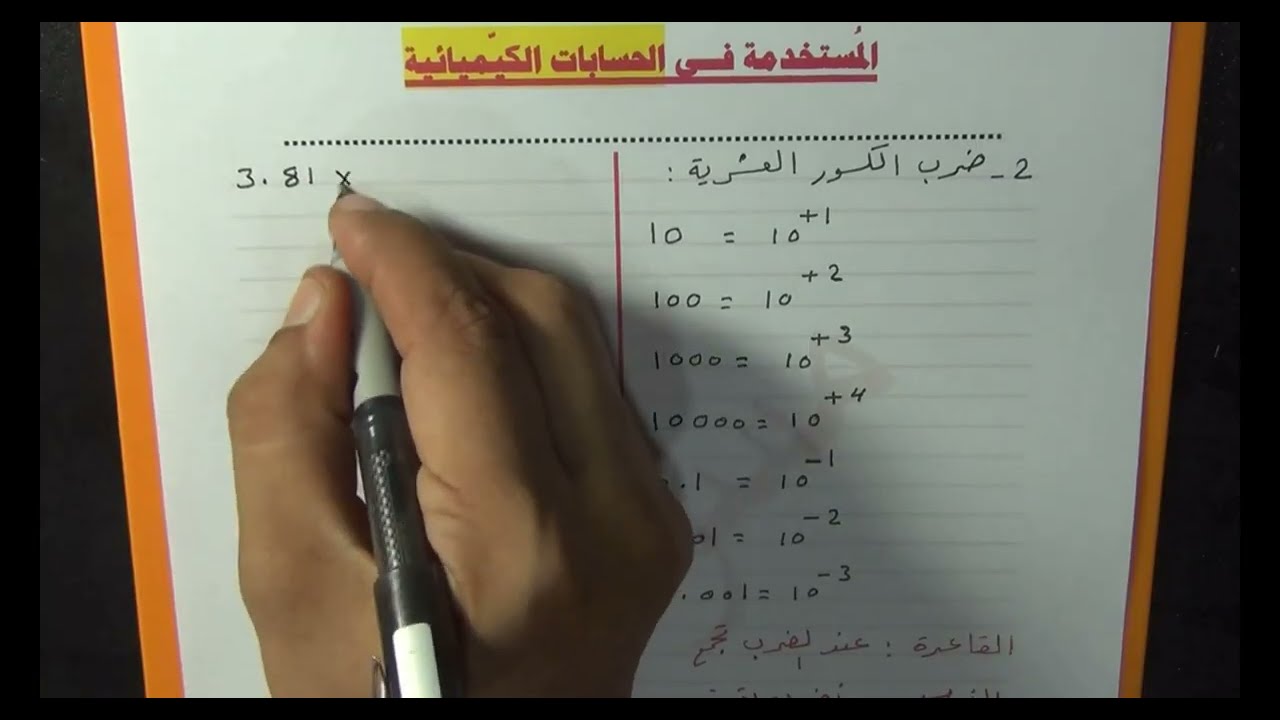 المُستخدمة في الحسابات الكيّميائية
2- ضرب الكسور العشرية :
10 = 10^+1
100 = 10^+2
1000 = 10^+3
10000 = 10^+4
.1 = 10^-1
01 = 10^-2
.001 = 10^-3
القاعدة : عند الضرب تجمع
3.81 x